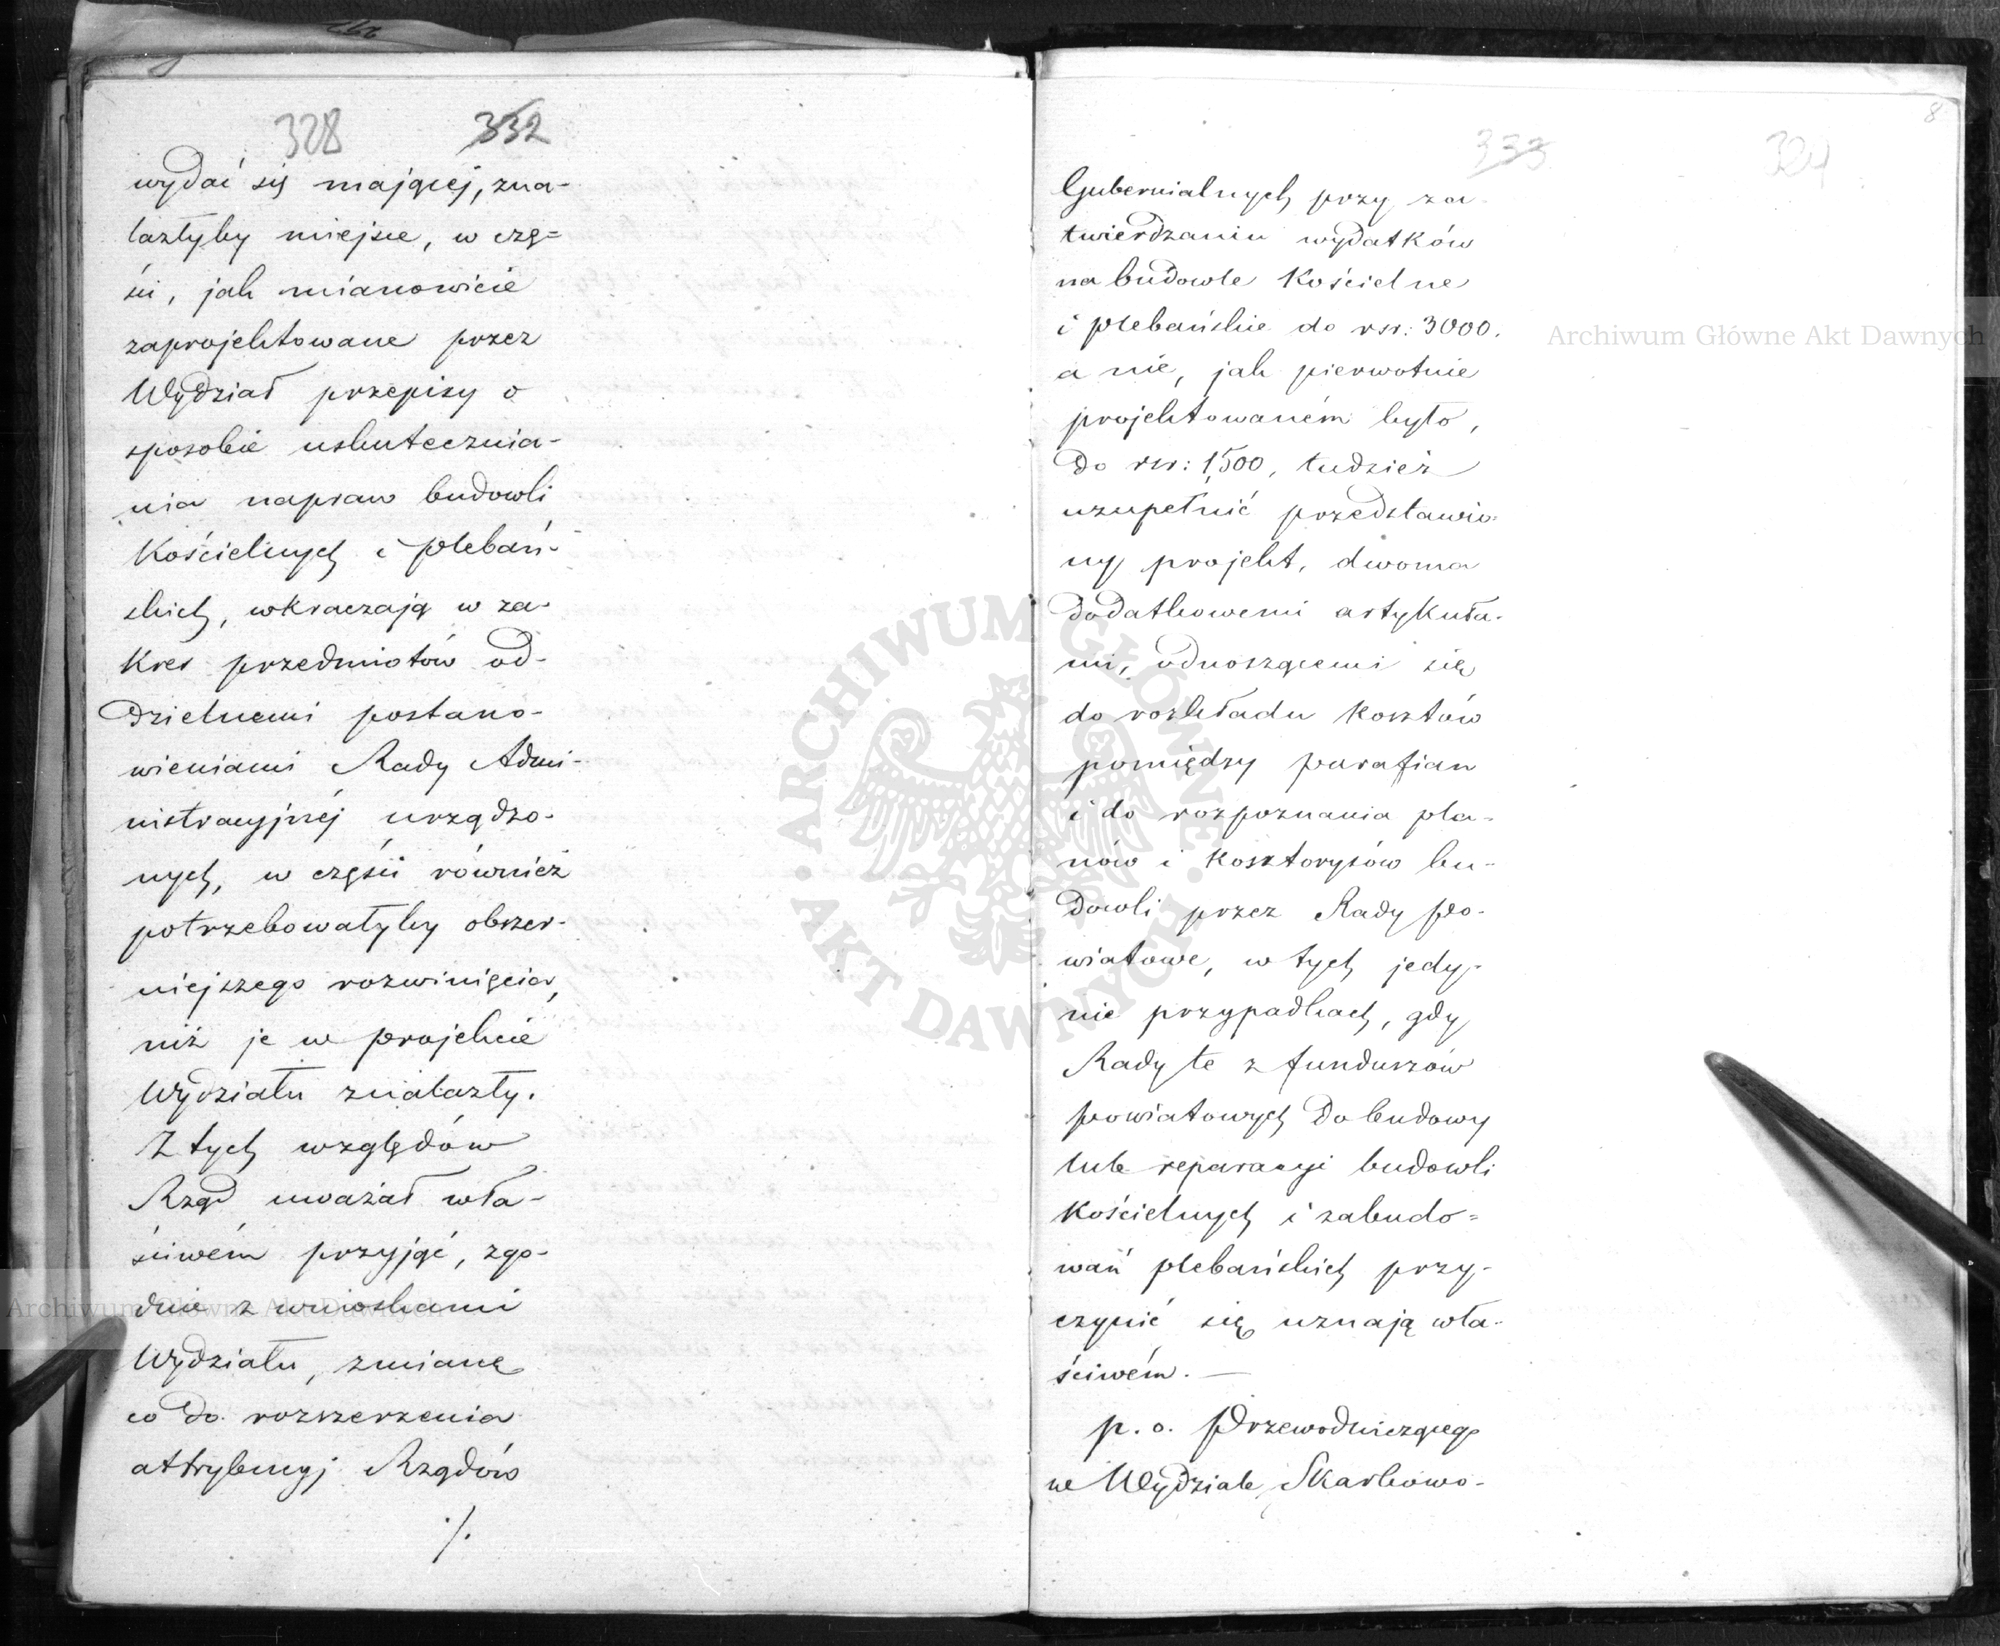 328 332
wydać się mającej, zna-
lazłyby miejsce, w czę=
ści, jak mianowicie
zaprojektowane przez
Wydział przepisy o
sposobie uskutecznia-
nia napraw budowli
Kościelnych i plebań-
skich, wkraczają w za-
kres przedmiotów od-
dzielnemi postano-
wieniami Rady Admi-
nistracyjnéj urządzo-
nych, w części również
potrzebowałyby obszer-
niejszego rozwinięcia,
niż je w projekcie
Wydziału znalazły.
Z tych względów
Rząd uważał wła-
ściwém przyjąć, zgo-
dnie z wnioskami
Wydziału, zmianę
co do rozszerzenia
attrybucyj Rządów
./.
8
333 329
Gubernialnych przy za-
twierdzaniu wydatków
na budowle Kościelne
i plebańskie do rsr: 3000.
a nie, jak pierwotnie
projektowaném było,
do rsr: 1,500, tudzież
uzupełnić przedstawio-
ny projekt, dwoma
dodatkowemi artykuła-
mi, odnoszącemi się
do rozkładu kosztów
pomiędzy parafian
i do rozpoznania pla-
nów i kosztorysów bu-
dowli przez Rady po-
wiatowe, w tych jedy-
nie przypadkach, gdy
Rady te z funduszów
powiatowych do budowy
lub reparacyi budowli
Kościelnych i zabudo=
wań plebańskich przy-
czynić się uznają wła-
ściwém. —
p. o. Przewodniczącego
w Wydziale Skarbowo-
Archiwum Główne Akt Dawnych
Archiwum Główne Akt Dawnych
ARCHIWUM GŁÓWNE · AKT DAWNYCH ·